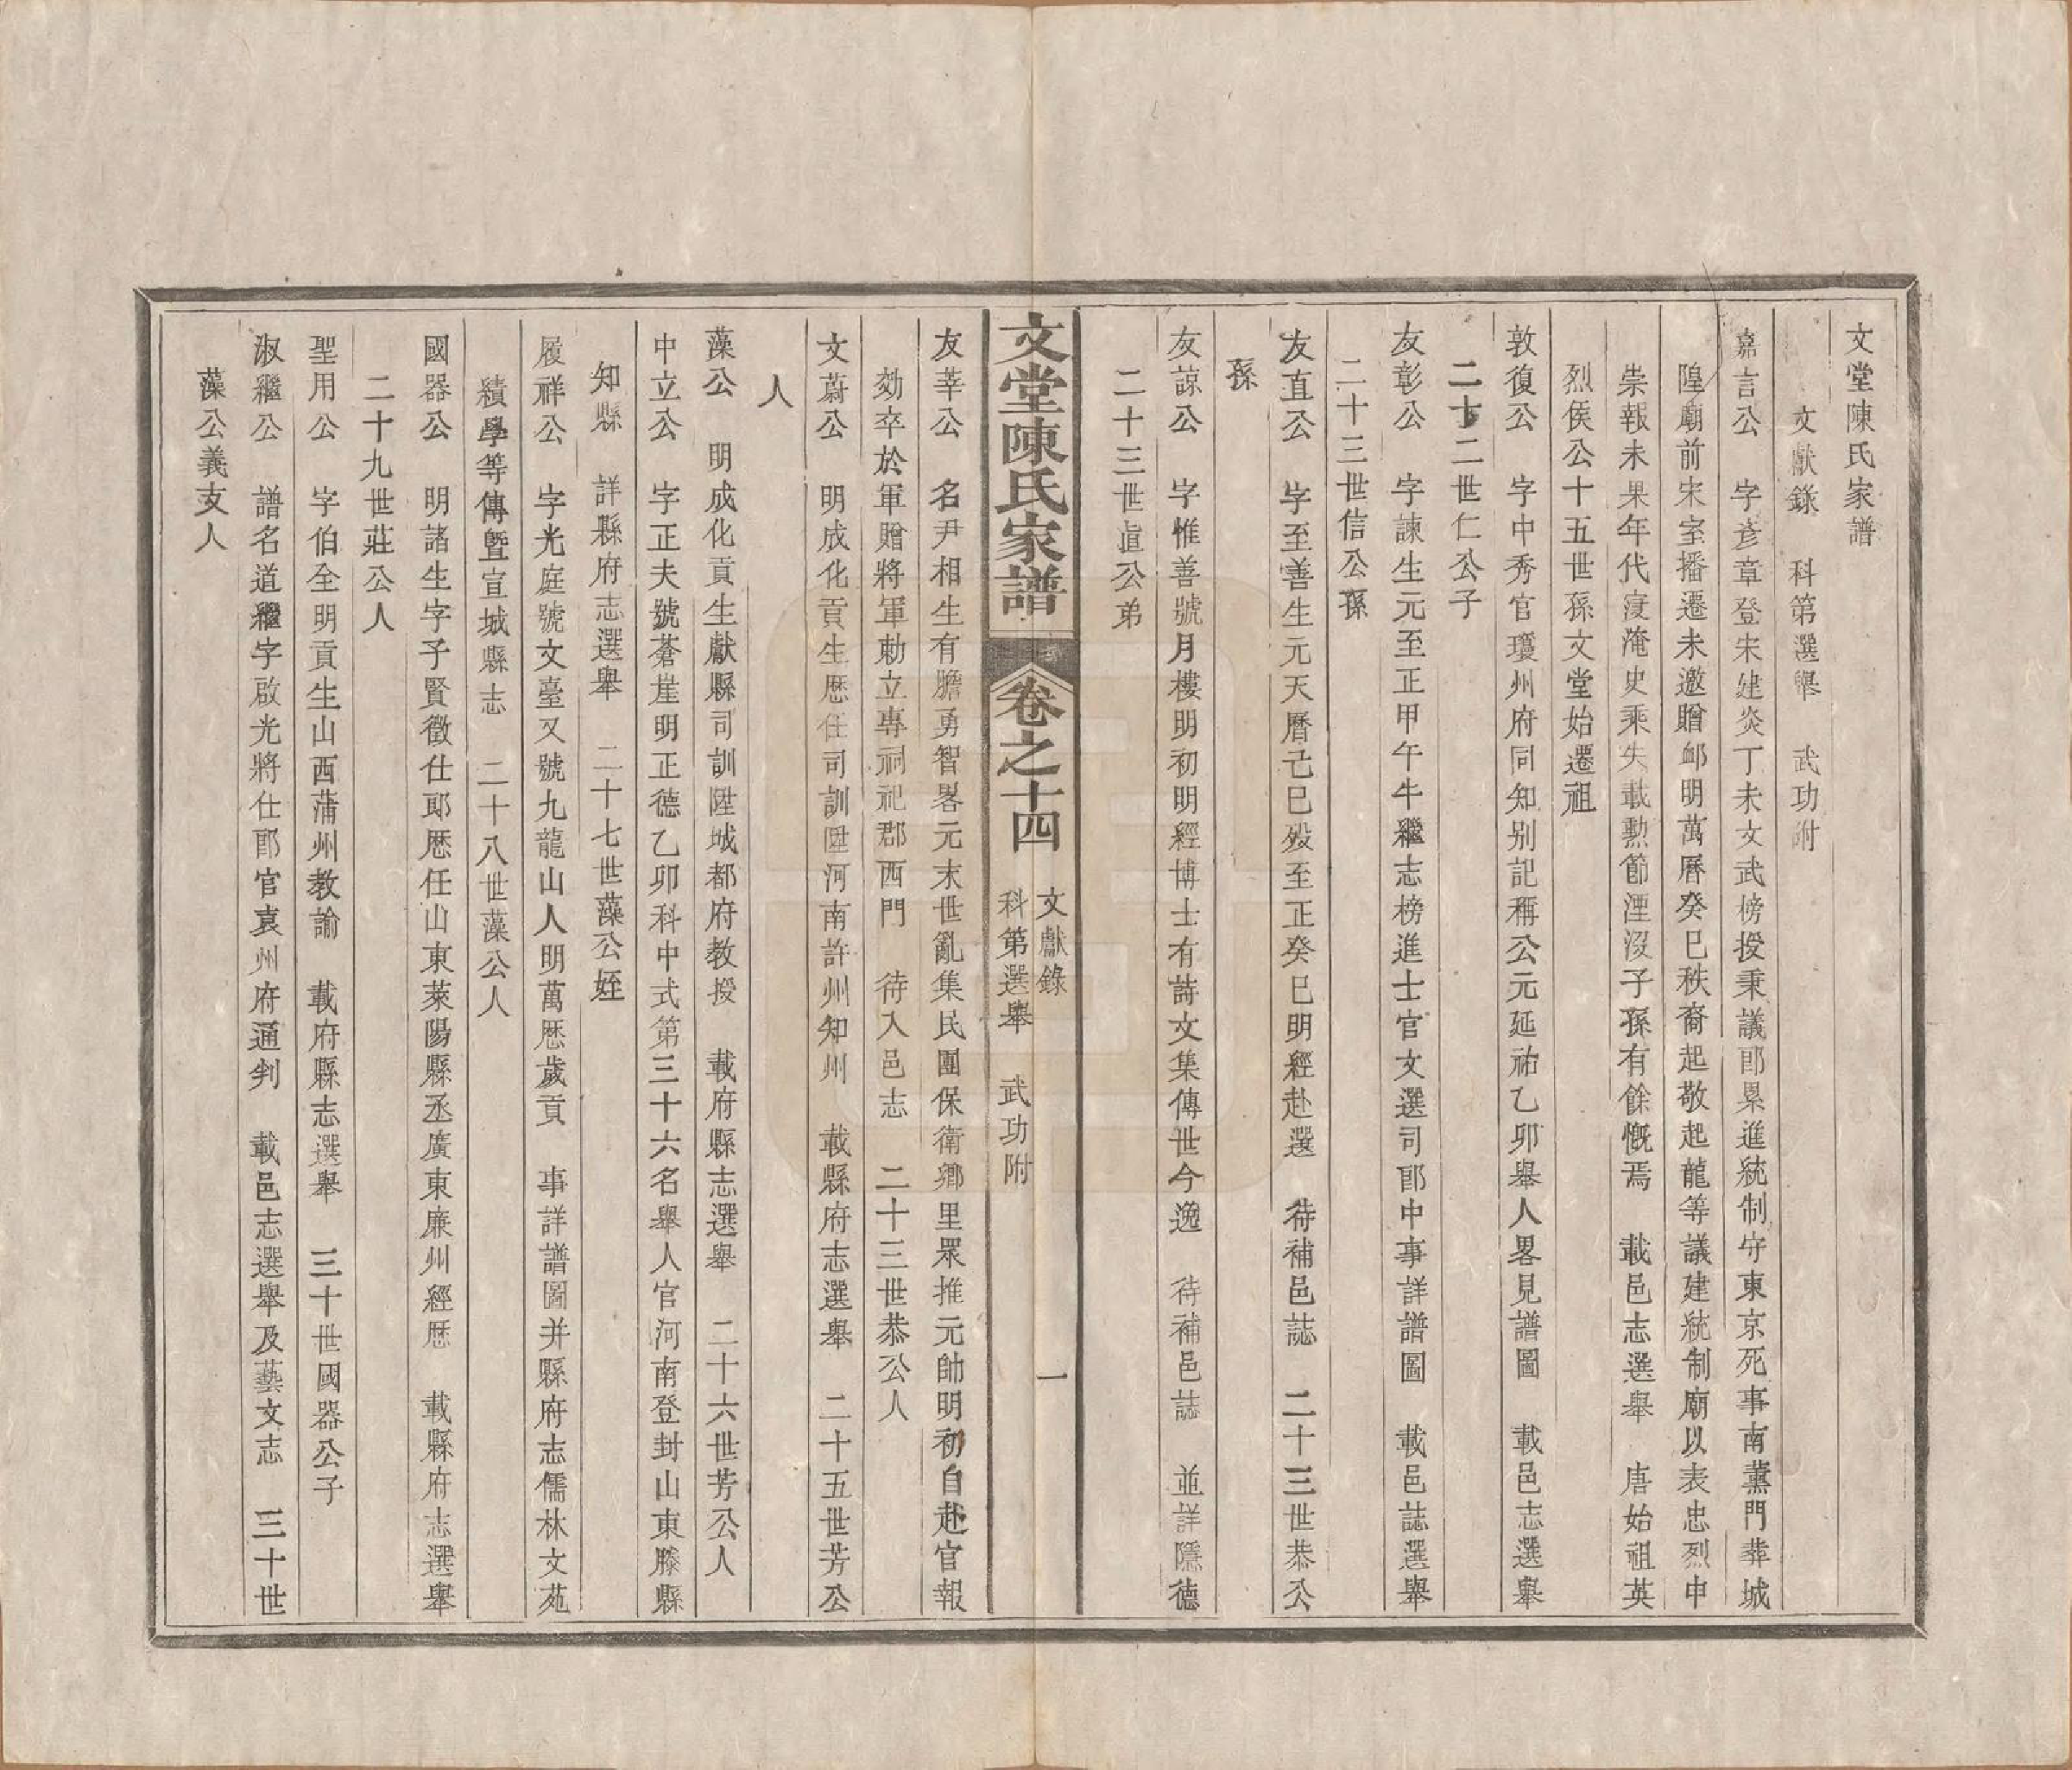 文堂陳氏家譜
文獻錄　科第選舉　武功附
嘉言公　字彥章登宋建炎丁未文武榜授秉議郎累進統制守東京死事南薰門葬城
隍廟前宋室播遷未邀贈卹明萬曆癸巳秩裔起敬起龍等議建統制廟以表忠烈申
崇報未果年代寖淹史乘失載勲節湮沒子孫有餘慨焉　載邑志選舉　唐始祖英
烈侯公十五世孫文堂始遷祖
敦復公　字中秀官瓊州府同知別記稱公元延祐乙卯舉人畧見譜圖　載邑志選舉
二十二世仁公子
友彰公　字諫生元至正甲午牛繼志榜進士官文選司郎中事詳譜圖　載邑誌選舉
二十三世信公孫
友直公　字至善生元天曆己巳歿至正癸巳明經赴選　待補邑誌　二十三世恭公
孫
友諒公　字惟善號月樓明初明經博士有詩文集傳世今逸　待補邑誌　並詳隱德
二十三世直公弟
文堂陳氏家譜　卷之十四　文獻錄　科第選舉　武功附　一
友莘公　名尹相生有膽勇智畧元末世亂集民團保衛鄉里眾推元帥明初自赴官報
効卒於軍贈將軍勅立專祠祀郡西門　待入邑志　二十三世恭公人
文蔚公　明成化貢生歷任司訓陞河南許州知州　載縣府志選舉　二十五世芳公
人
藻公　明成化貢生獻縣司訓陞城都府教授　載府縣志選舉　二十六世芳公人
中立公　字正夫號蒼崖明正德乙卯科中式第三十六名舉人官河南登封山東滕縣
知縣　詳縣府志選舉　二十七世藻公姪
履祥公　字光庭號文臺又號九龍山人明萬歷歲貢　事詳譜圖并縣府志儒林文苑
績學等傳暨宣城縣志　二十八世藻公人
國器公　明諸生字子賢徵仕郎歷任山東萊陽縣丞廣東廉州經歷　載縣府志選舉
二十九世莊公人
聖用公　字伯全明貢生山西蒲州教諭　載府縣志選舉　三十世國器公子
淑繼公　譜名道繼字啟光將仕郎官袁州府通判　載邑志選舉及藝文志　三十世
藻公義支人